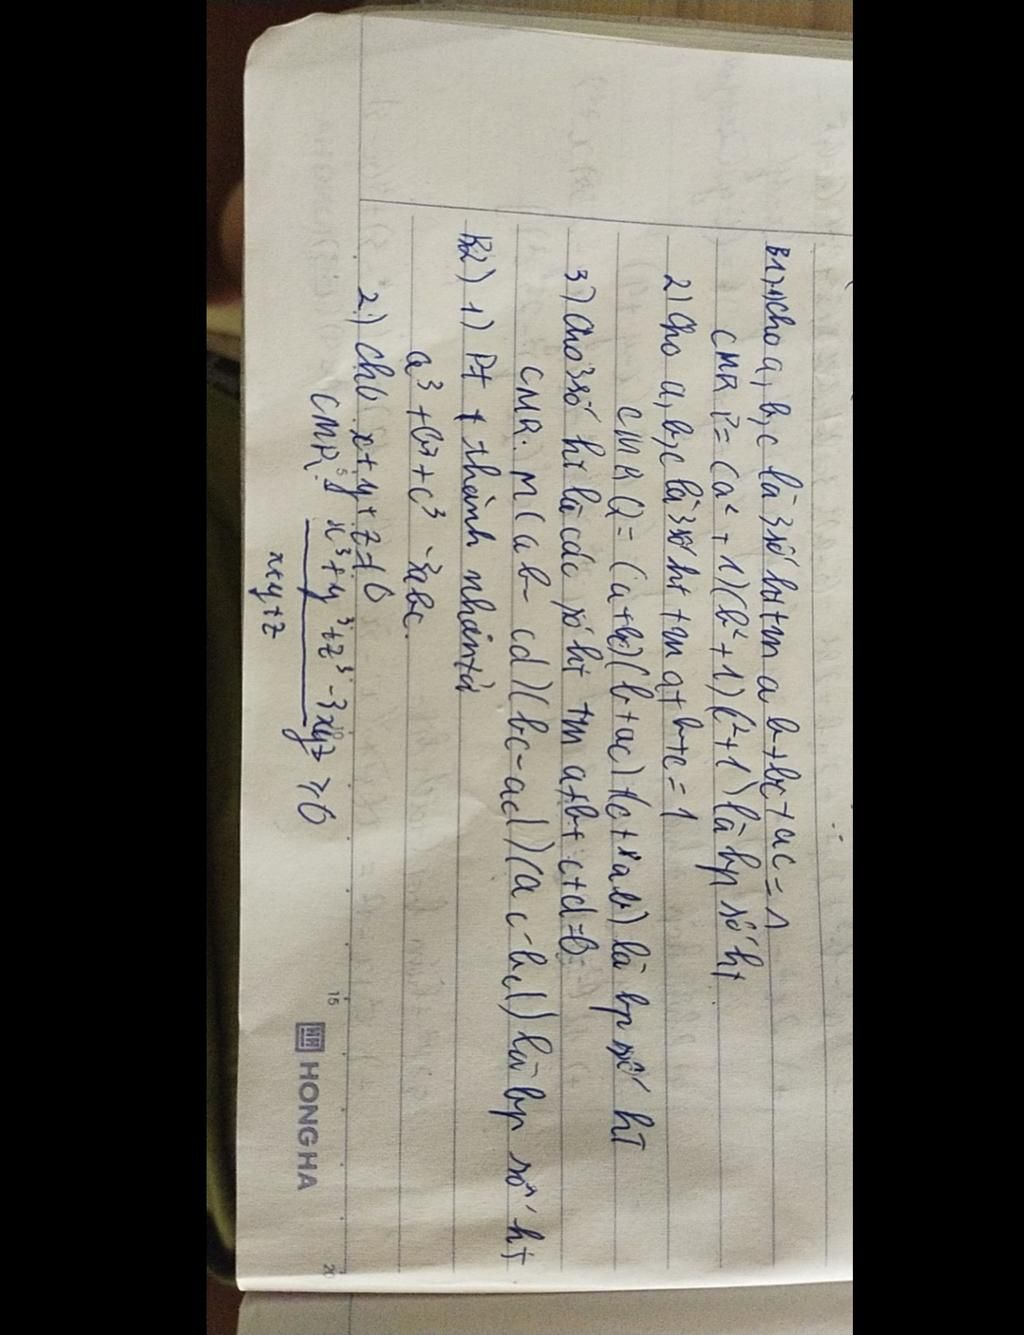 B1) 1) Cho a, b, c là 3 số ht tm ab+bc+ac=1
CMR P=(a²+1)(b²+1)(c²+1) là bp số ht
2) Cho a, b, c là 3 số ht tm a+b+c=1
CMR Q=(a+bc)(b+ac)(c+ab) là bp số hT
3) Cho 3 số ht là các số ht tm a+b+c+d=0
CMR: M(ab-cd)(bc-ad)(ac-bd) là bp số ht
B2) 1) Pt thành nhân tử
a³+b³+c³-3abc.
2.) Cho x+y+z≠0
CMR: x³+y³+z³-3xyz ≥0
x+y+z
5
10
15
20
HONG HA